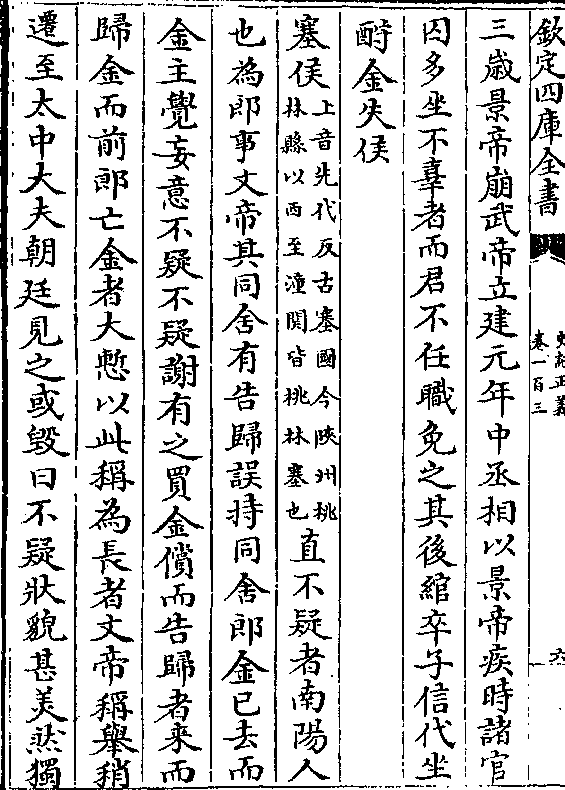 欽定四庫全書
史記正義
卷一百三
六
三歲景帝崩武帝立建元年中丞相以景帝疾時諸官
囚多坐不辜者而君不任職免之其後綰卒子信代坐
酎金失侯
塞侯上音先代反古塞國今陜州桃
林縣以西至潼関皆桃林塞也直不疑者南陽人
也為郎事文帝其同舍有告歸誤持同舍郎金已去而
金主覺妄意不疑不疑謝有之買金償而告歸者来而
歸金而前郎亡金者大慙以此稱為長者文帝稱舉稍
遷至太中大夫朝廷見之或毀曰不疑狀貌甚美然獨